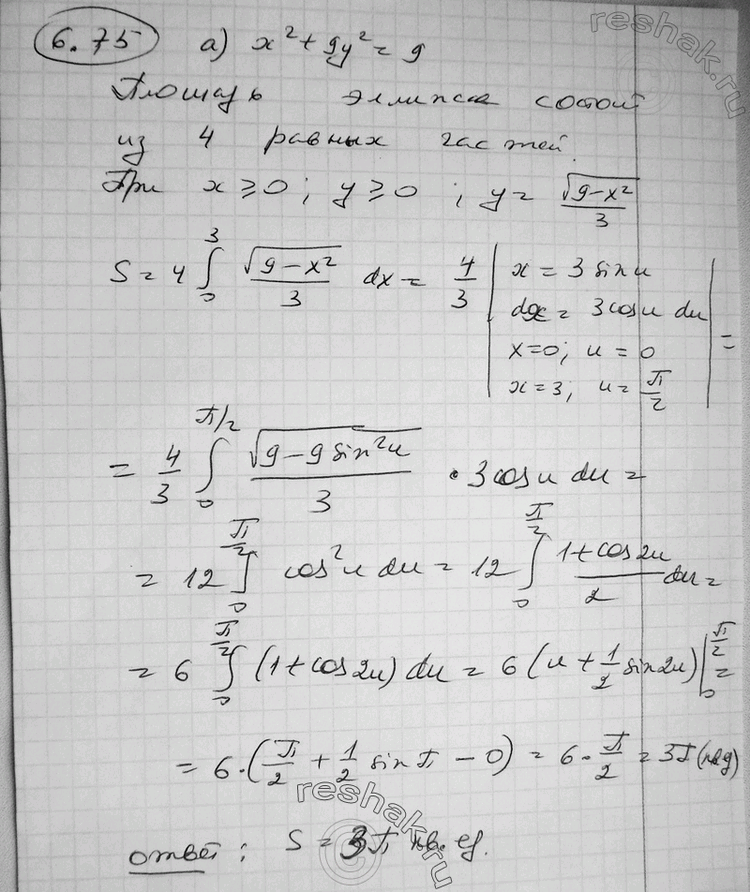 6.75 а) x² + 9y² = 9
Площадь эллипса состоит
из 4 равных частей.
При x ≥ 0; y ≥ 0; y = √(9-x²)/3
S = 4 ∫₀³ √(9-x²)/3 dx = 4/3 | x = 3 sin u
dx = 3 cos u du
x=0; u = 0
x = 3; u = π/2 | =
= 4/3 ∫₀^(π/2) √(9-9 sin²u)/3 · 3 cos u du =
= 12 ∫₀^(π/2) cos²u du = 12 ∫₀^(π/2) (1+cos 2u)/2 du =
= 6 ∫₀^(π/2) (1+cos 2u) du = 6 (u + 1/2 sin 2u)|₀^(π/2) =
= 6·(π/2 + 1/2 sin π - 0) = 6·π/2 = 3π (кв.ед)
ответ: S = 3π кв. ед.
reshak.ru
reshak.ru
reshak.ru